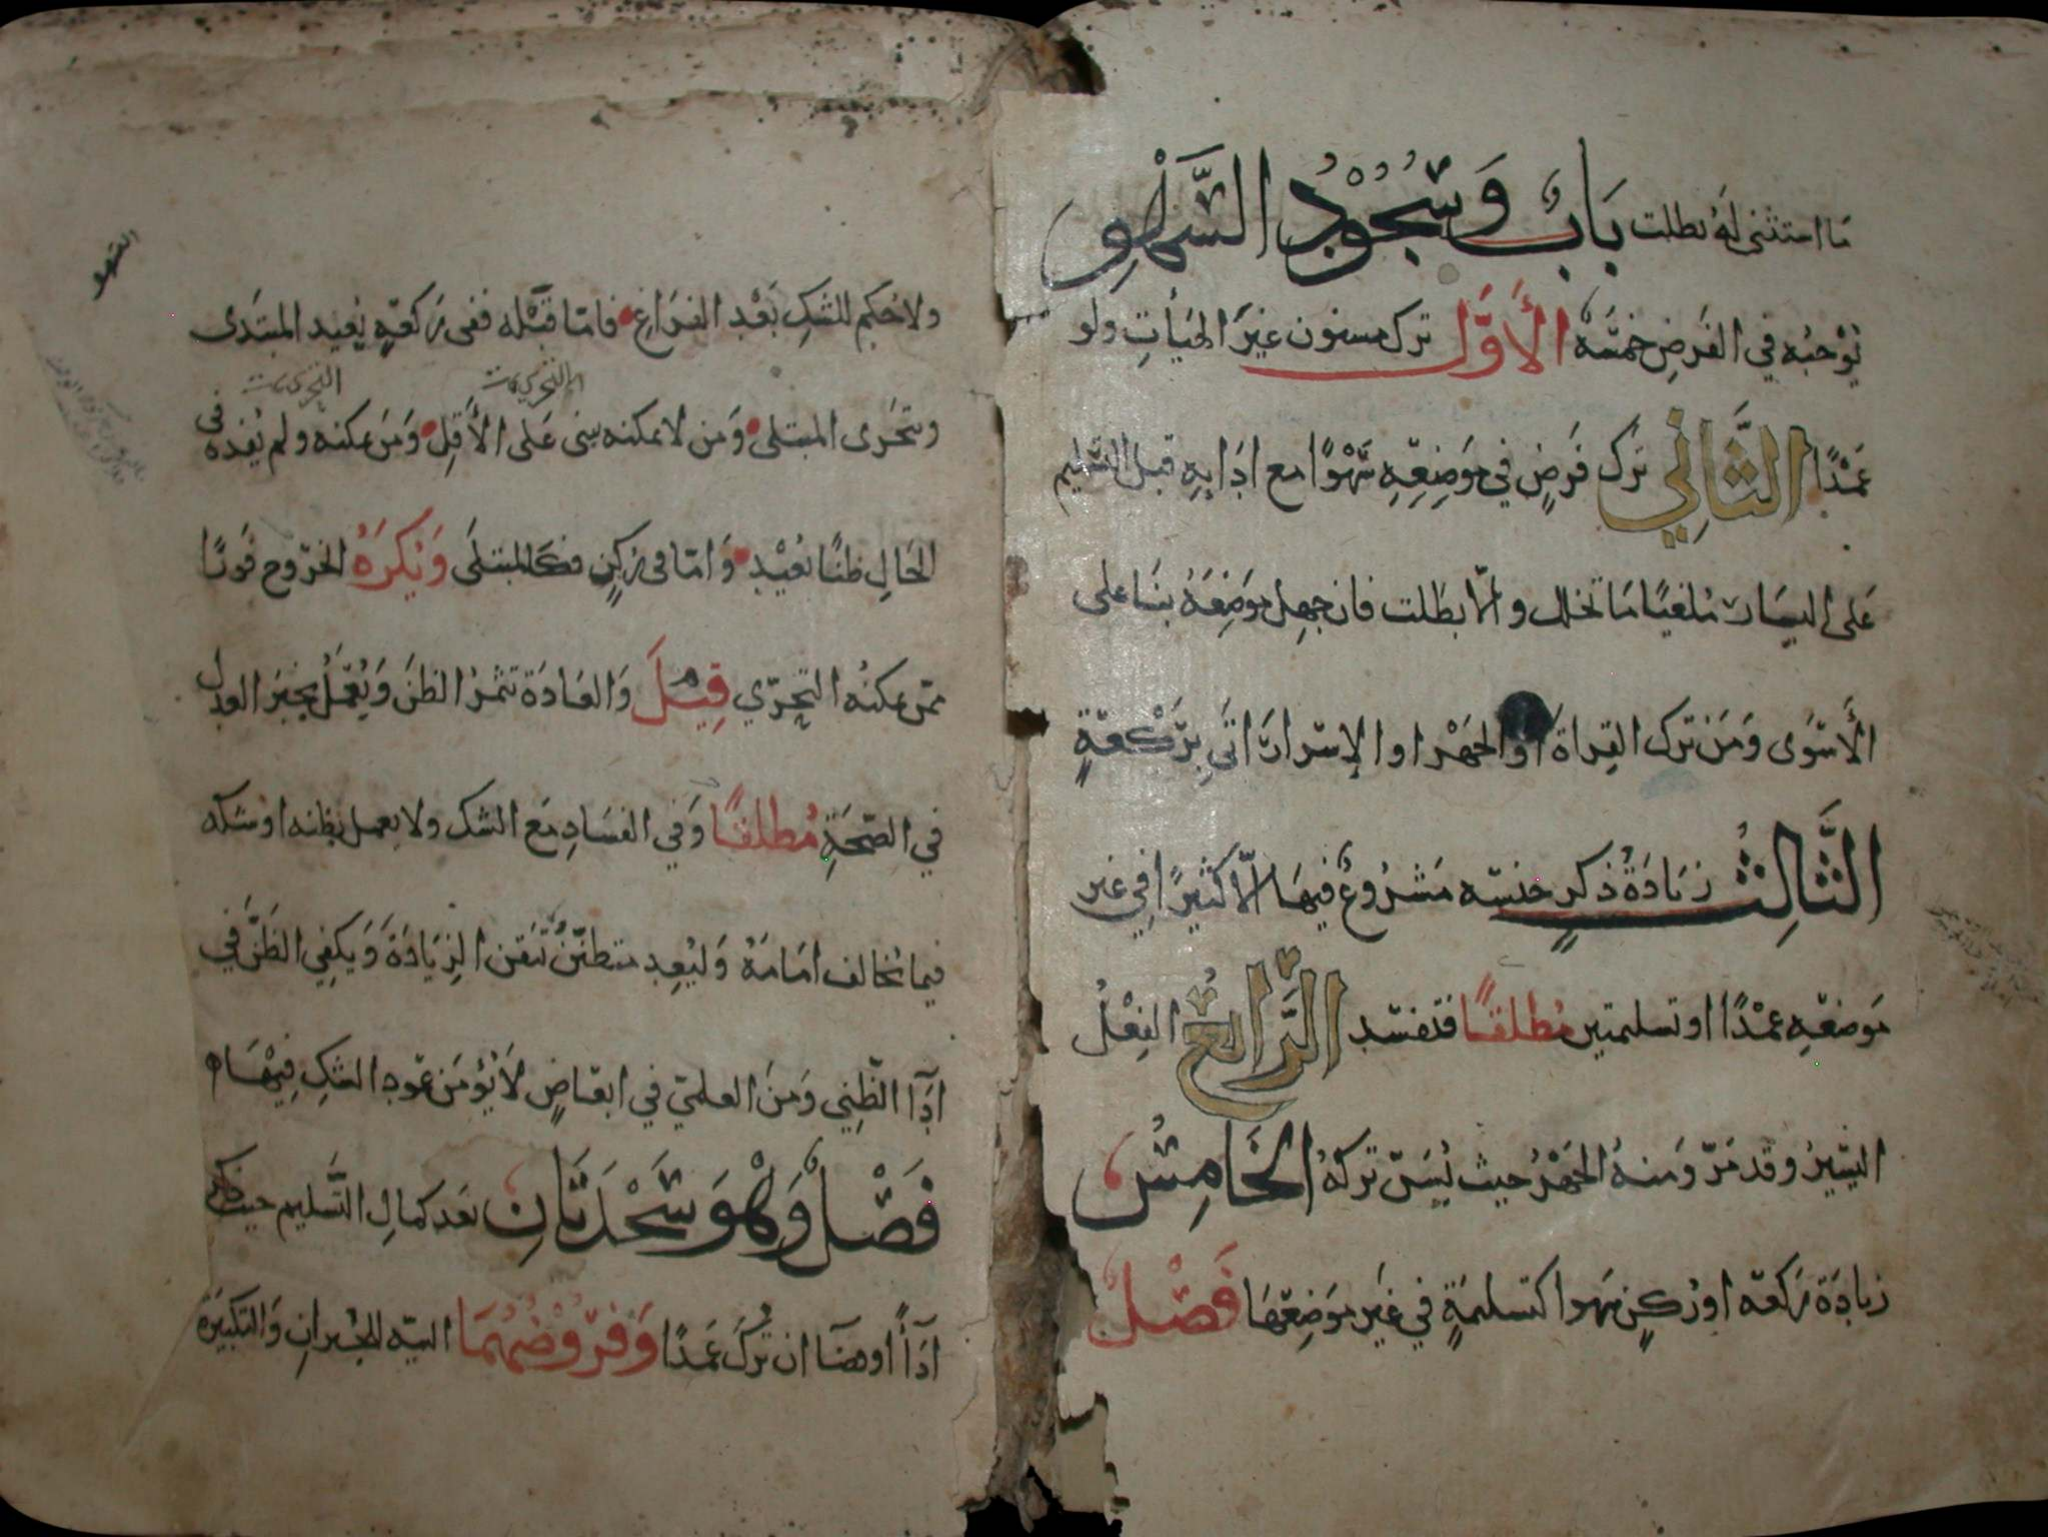 ما استثنى له بطلت بَابٌ وَسُجُوْدُ السَّهْوِ
يوجبه في الفرض خمسة الأَوَّل ترك مسنون غير الهيات ولو
عَمْدًا الثَّانِي ترك فرض في موضعه سهوًا مع ادايه قبل التسليم
على اليسار ملغيا ما تخلل والا بطلت فان جهل موضعه بنا على
الأسوى ومن ترك القراة او الجهر او الإسرار اتى بركعة
الثَّالِثُ زيادة ذكر جنسه مشروع فيها الا كثيرًا في غير
موضعه عمدًا او تسليمتين مطلقًا فتفسد الرَّابِعُ الفعل
اليسير وقد مر ومنه الجهر حيث يسن تركه الخَامِسُ
زيادة ركعة او ركن سهوا كتسليمة في غير موضعها فَصْلٌ
ولا حكم للشك بعد الفراغ فاما قبله ففي ركعة يعيد المبتدى
ويتحرى المبتلى ومن لا يمكنه يبنى على الأقل ومن يمكنه ولم يفده في
الحال ظنًا يعيد واما في ركن فكالمبتلى وَيُكرَهُ الخروج فورًا
ممن يمكنه التحري قِيْلَ والعادة تثمر الظن ويعمل بخبر العدل
في الصحة مُطلقًا وفي الفساد مع الشك ولا يعمل بظنه او شكه
فيما يخالف امامه وليعد متظنن تيقن الزيادة ويكفي الظن في
ادآ الظني ومن العلمي في ابعاض لا يؤمن عود الشك فيها
فَصْلٌ وَهْوَ سَجْدَتَانِ بعد كمال التسليم حيث ذكر
ادآً او قضآ ان ترك عمدًا وَفرُوْضُهُمَا النية للجبران والتكبيرة